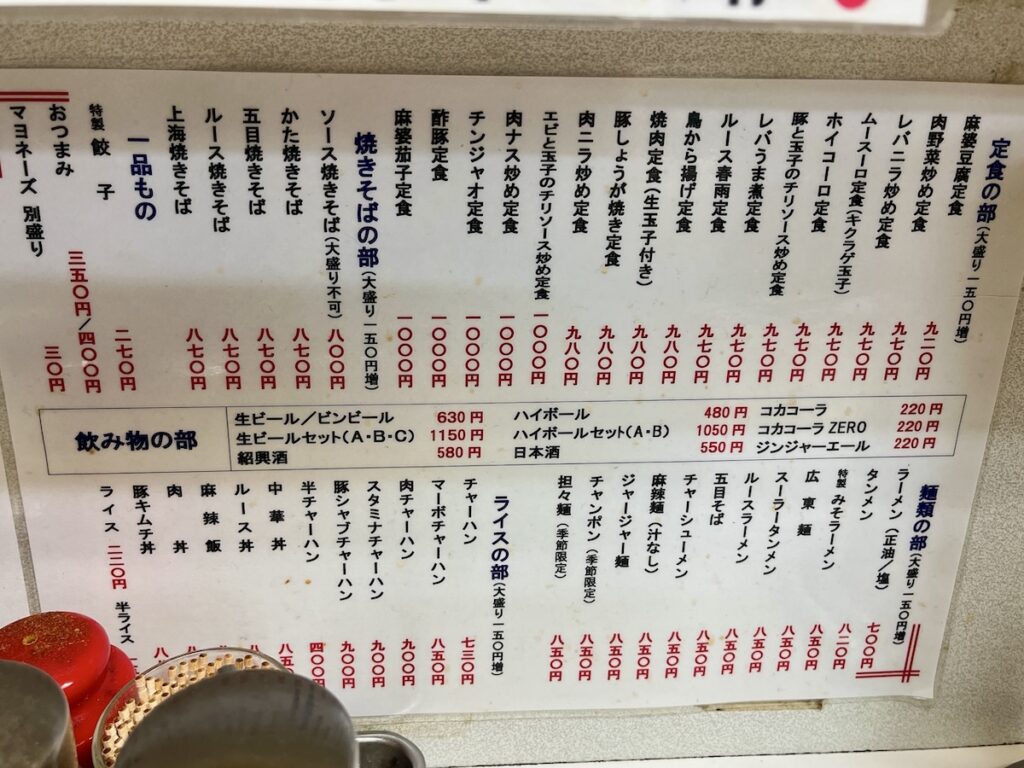 定食の部(大盛り一五〇円増)
麻婆豆腐定食 九二〇円
肉野菜炒め定食 九七〇円
レバニラ炒め定食 九七〇円
ムースーロ定食(キクラゲ玉子) 九七〇円
ホイコーロ定食 九七〇円
豚と玉子のチリソース炒め定食 九七〇円
レバうま煮定食 九七〇円
ルース春雨定食 九七〇円
鳥から揚げ定食 九八〇円
焼肉定食(生玉子付き) 九八〇円
豚しょうが焼き定食 九八〇円
肉ニラ炒め定食 九八〇円
エビと玉子のチリソース炒め定食 一〇〇〇円
肉ナス炒め定食 一〇〇〇円
チンジャオ定食 一〇〇〇円
酢豚定食 一〇〇〇円
麻婆茄子定食 一〇〇〇円
焼きそばの部(大盛り一五〇円増)
ソース焼きそば(大盛り不可) 八〇〇円
かた焼きそば 八七〇円
五目焼きそば 八七〇円
ルース焼きそば 八七〇円
上海焼きそば 八七〇円
一品もの
特製 餃子 二七〇円
おつまみ 三五〇円/四〇〇円
マヨネーズ 別盛り 三〇円
飲み物の部
生ビール/ビンビール 630円
生ビールセット(A・B・C) 1150円
紹興酒 580円
ハイボール 480円
ハイボールセット(A・B) 1050円
日本酒 550円
コカコーラ 220円
コカコーラ ZERO 220円
ジンジャーエール 220円
麺類の部(大盛り一五〇円増)
ラーメン(正油/塩) 七〇〇円
タンメン 八二〇円
特製 みそラーメン 八五〇円
広東麺 八五〇円
スーラータンメン 八五〇円
ルースラーメン 八五〇円
五目そば 八五〇円
チャーシューメン 八五〇円
麻辣麺(汁なし) 八五〇円
ジャージャー麺 八五〇円
チャンポン(季節限定) 八五〇円
担々麺(季節限定) 八五〇円
ライスの部(大盛り一五〇円増)
チャーハン 七三〇円
マーボチャーハン 八五〇円
肉チャーハン 九〇〇円
スタミナチャーハン 九〇〇円
豚シャブチャーハン 九〇〇円
半チャーハン 四〇〇円
中華丼 八五
ルース丼 八
麻辣飯 八
肉丼 八
豚キムチ丼 八
ライス 二二〇円 半ライス